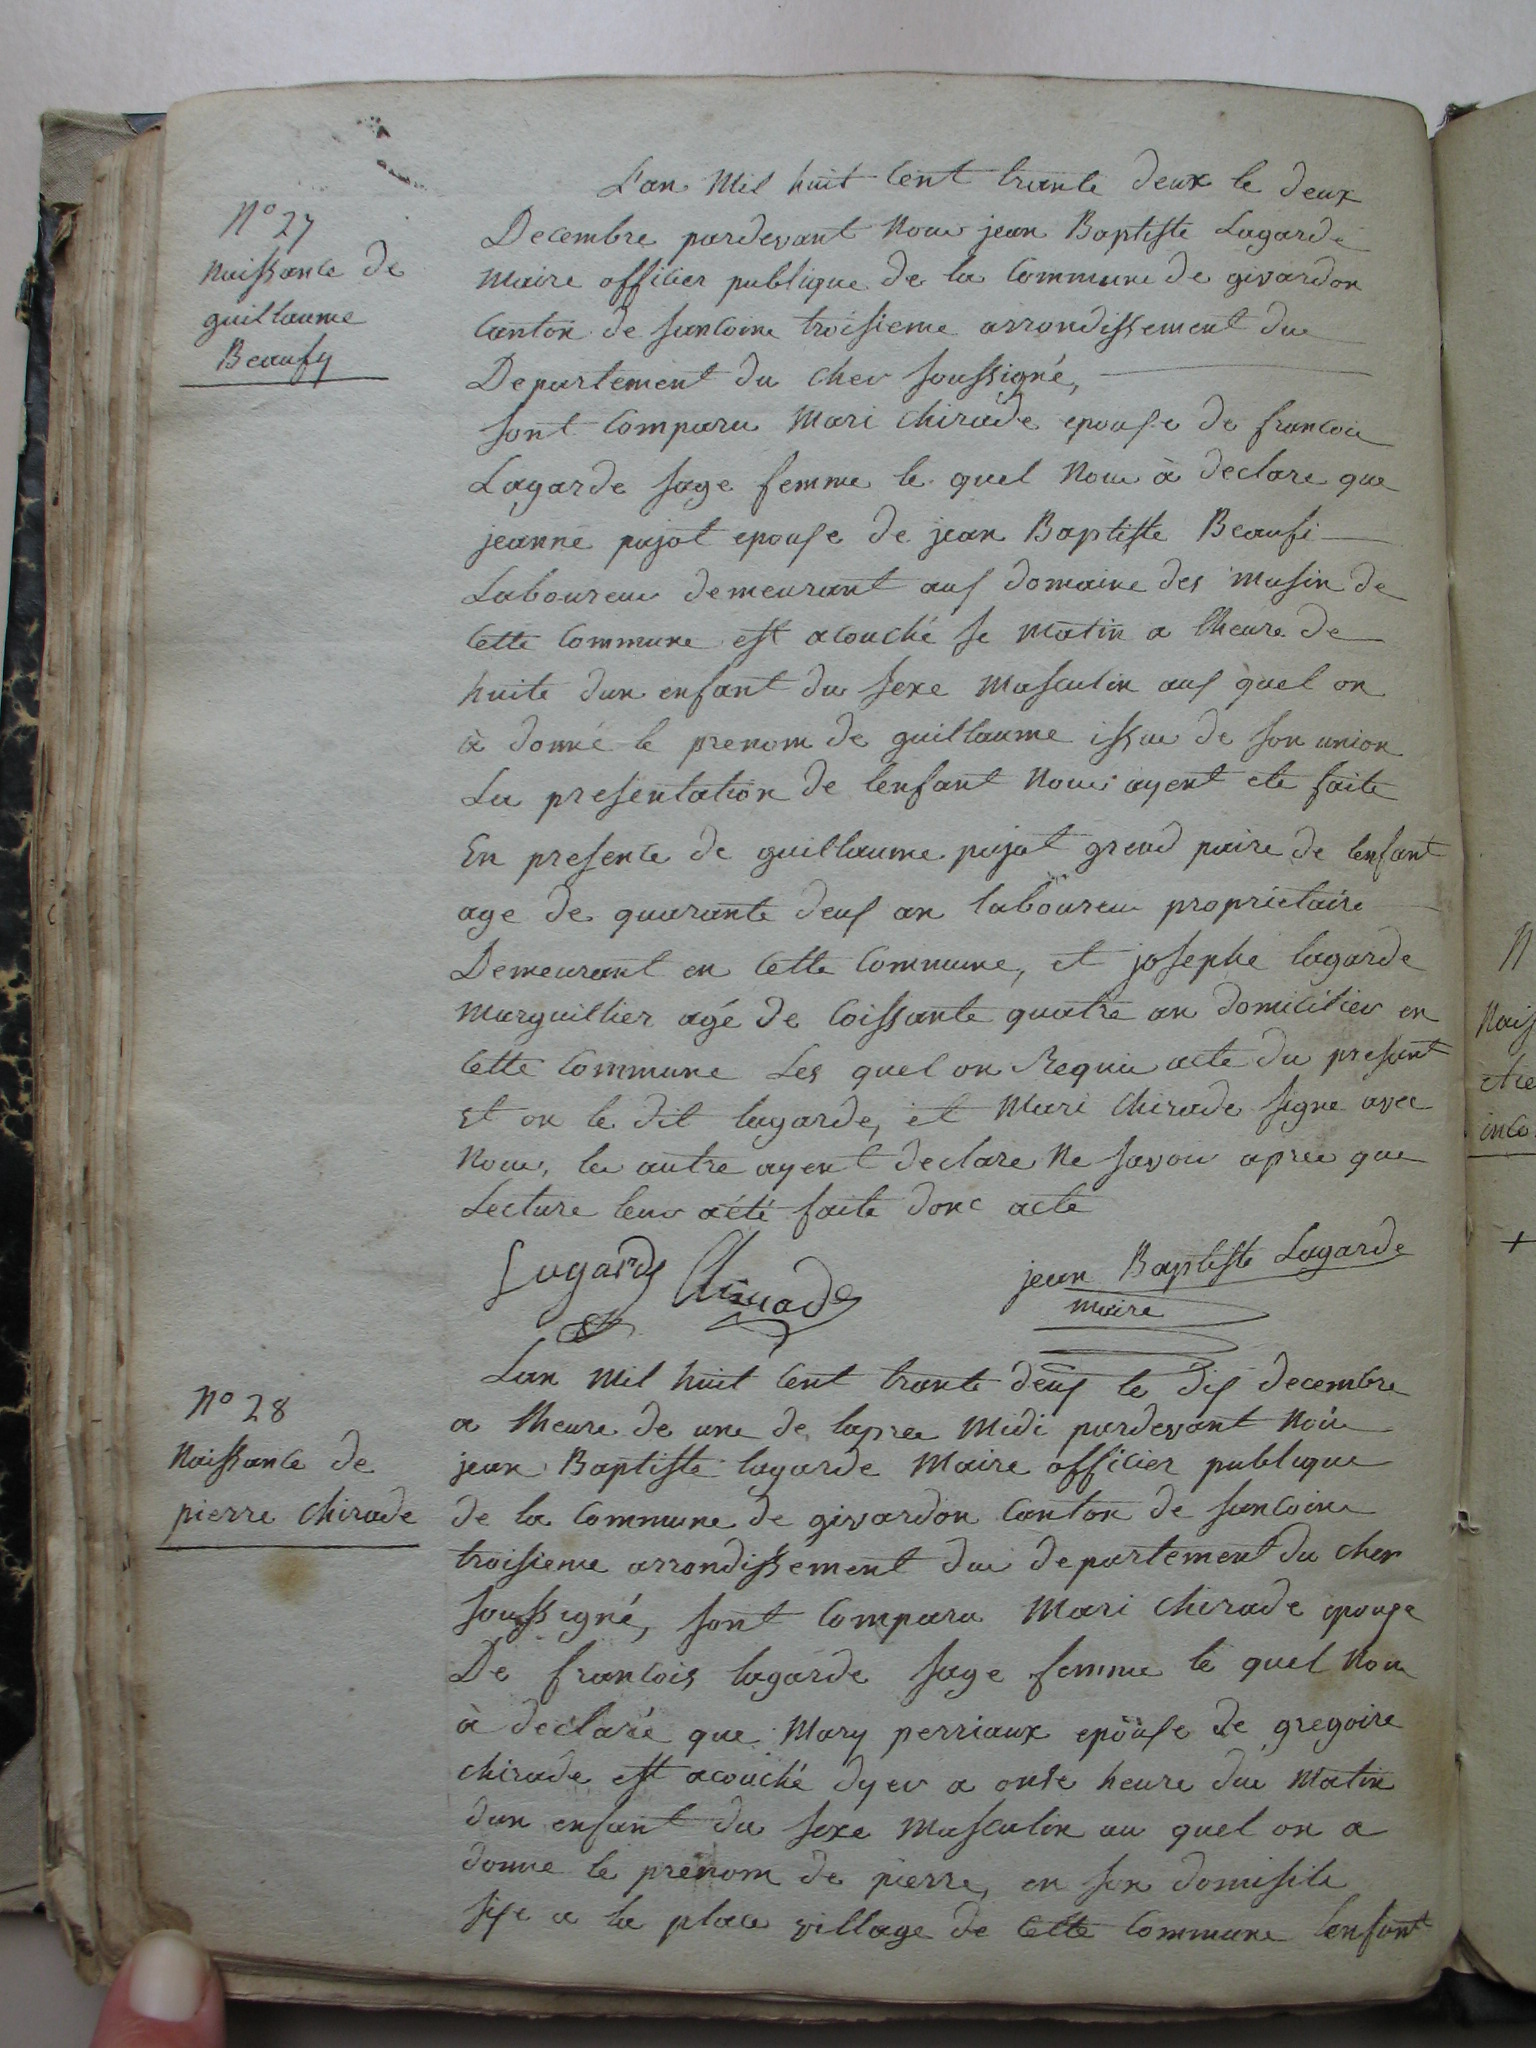 N° 27
Naissance de
guillaume
Beaufy
L'an Mil huit Cent trante deux le deux
Decembre pardevant Nous jean Baptiste Lagarde
Maire officier publique de la Commune de givardon
Canton de sancoine troisieme arrondissement du
Departement du cher soussigné,
sont Comparu Mari chirade epouse de francois
Lagarde sage femme le quel Nous à declare que
jeanne pujot epouse de jean Baptiste Beaufi
Laboureur demeurant aus domaine des Masin de
Cette Commune est acouché se matin a lheure de
huite dun enfant du sexe Masculin aus quel on
à donné le prenom de guillaume issue de son union
La presentation de lenfant Nous ayent ete faite
En presence de guillaume pujot grend paire de lenfant
age de quarante deus an laboureur proprietaire
Demeurant en Cette Commune, et josephe lagarde
Marguillier agé de Coissante quatre an domicilier en
Cette Commune Les quel on Requis acte du presant
et on le dit lagarde, et Mari chirade signe avec
Nous, les autre ayent declare Ne savoir apree que
Lecture leur aété faite donc acte
Lagarde Chirade
jean Baptiste Lagarde
maire
N° 28
Naissance de
pierre chirade
Lan Mil huit Cent trante deus le dis decembre
a lheure de une de lapree Midi pardevant Nous
jean Baptiste lagarde Maire officier publique
de la Commune de givardon Canton de sancoine
troisieme arrondissement du departement du cher
soussigné, sont Comparu Mari chirade epouse
De francois lagarde sage femme le quel Nous
à declaré que Mary perriaux epouse de gregoire
chirade est acouché dyer a onse heure du Matin
dun enfant du sexe Masculin au quel on a
donne le prenom de pierre, en son domisile
sise a la place village de Cette Commune lenfant
N
Nais
inco
+